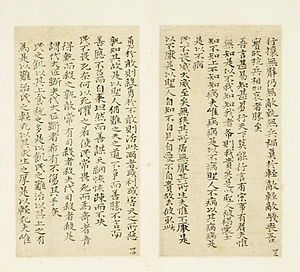 行攘無臂仍無敵執無兵禍莫大於輕敵輕敵幾喪吾
寶故抗兵相加哀者勝矣
吾言甚易知甚易行天下莫能知莫能行言有宗事有君夫唯
無知是以不我知知我者希則我者貴是以聖人被褐懷玉
知不知上不知知病夫唯病病是以不病聖人不病以其病病
是以不病
民不畏威大威至矣無狹其所居無厭其所生夫唯不厭是
以不厭是以聖人自知不自見自愛不自貴故去彼取此
勇於敢則殺勇於不敢則活此兩者或利或害天之所惡
孰知其故是以聖人猶難之天之道不爭而善勝不言而
善應不召而自來繟然而善謀天網恢恢疏而不失
民不畏死奈何以死懼之若使民常畏死而為奇者吾
得執而殺之孰敢常有司殺者殺夫代司殺者殺是
謂代大匠斲夫代大匠斲者希有不傷其手矣
民之飢以其上食稅之多是以飢民之難治以其上之有
為是以難治民之輕死以其上求生之厚是以輕死夫唯